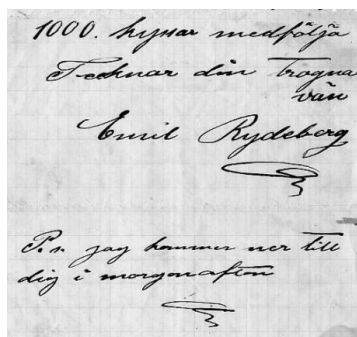 1000. kyssar medfölja
Tecknar din trogna
vän
Emil Rydeberg
P.s. jag kommer ner till
dig i morgon afton